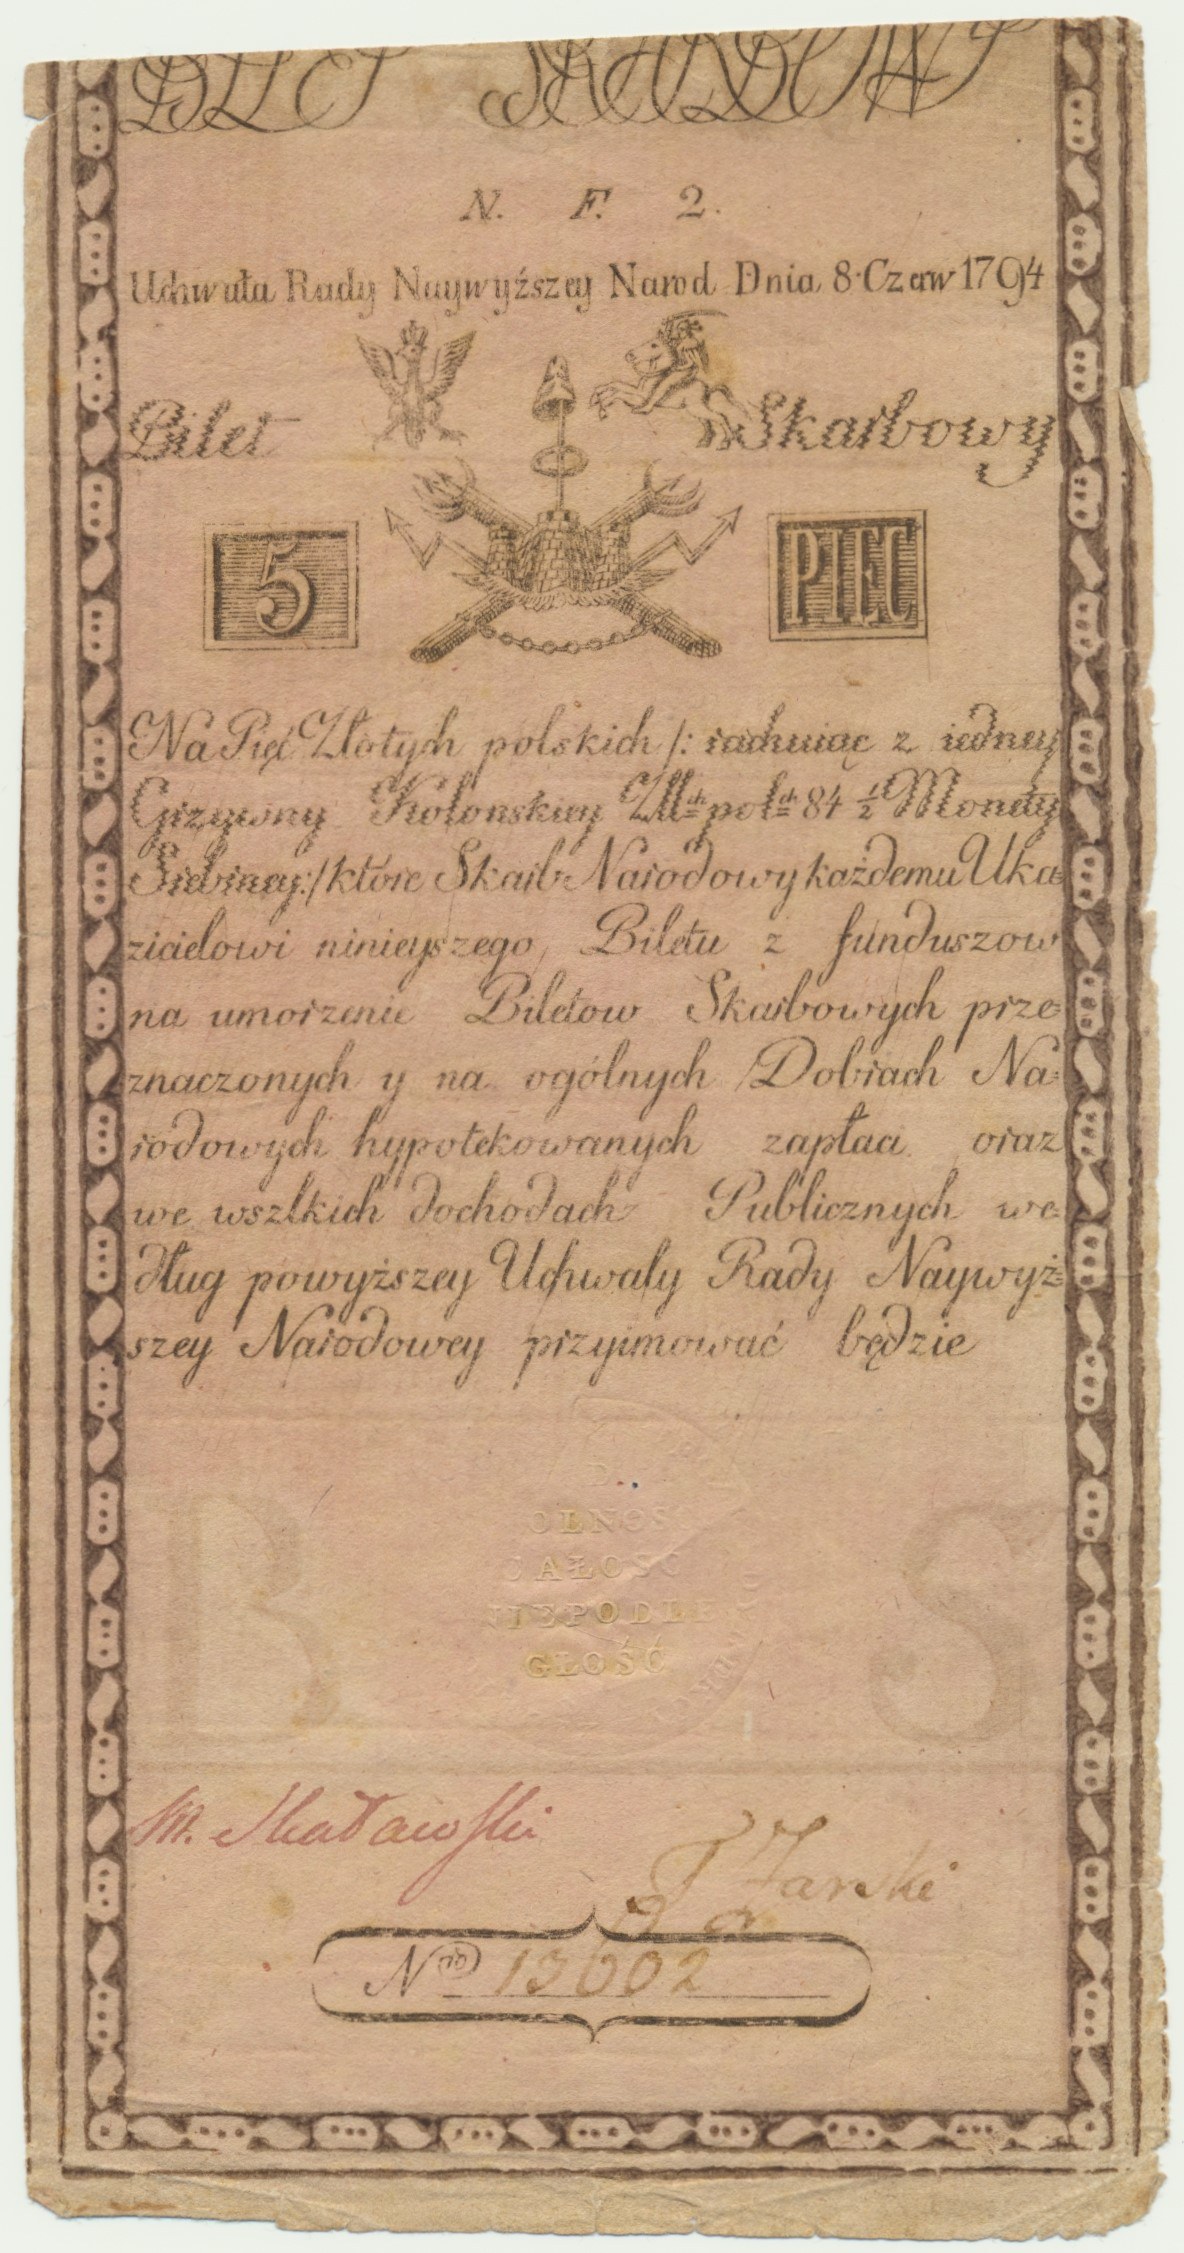 BILET SKARBOWY
N. F. 2.
Uchwała Rady Naywyższey Narod Dnia 8 Czerw 1794
Bilet Skarbowy
5 PIĘC
Na Pięć Złotych polskich /: rachuiąc z iedney
Grzywny Kolonskiey Zll^ch pol^ch 84 ½ Monety
Srebrney :/ które Skarb Narodowy każdemu Uka=
zicielowi ninieyszego, Biletu z funduszow
na umorzenie Biletow Skarbowych prze=
znaczonych y na ogólnych Dobrach Na=
rodowych hypotekowanych zapłaci oraz
we wszlkich dochodach Publicznych we=
dług powyższey Uchwały Rady Naywyż=
szey Narodowey przyimować będzie
OLNOSC
CAŁOSC
NIEPODLE
GŁOŚĆ
B S
M. Skaławski
Żarski
N^ro 13602